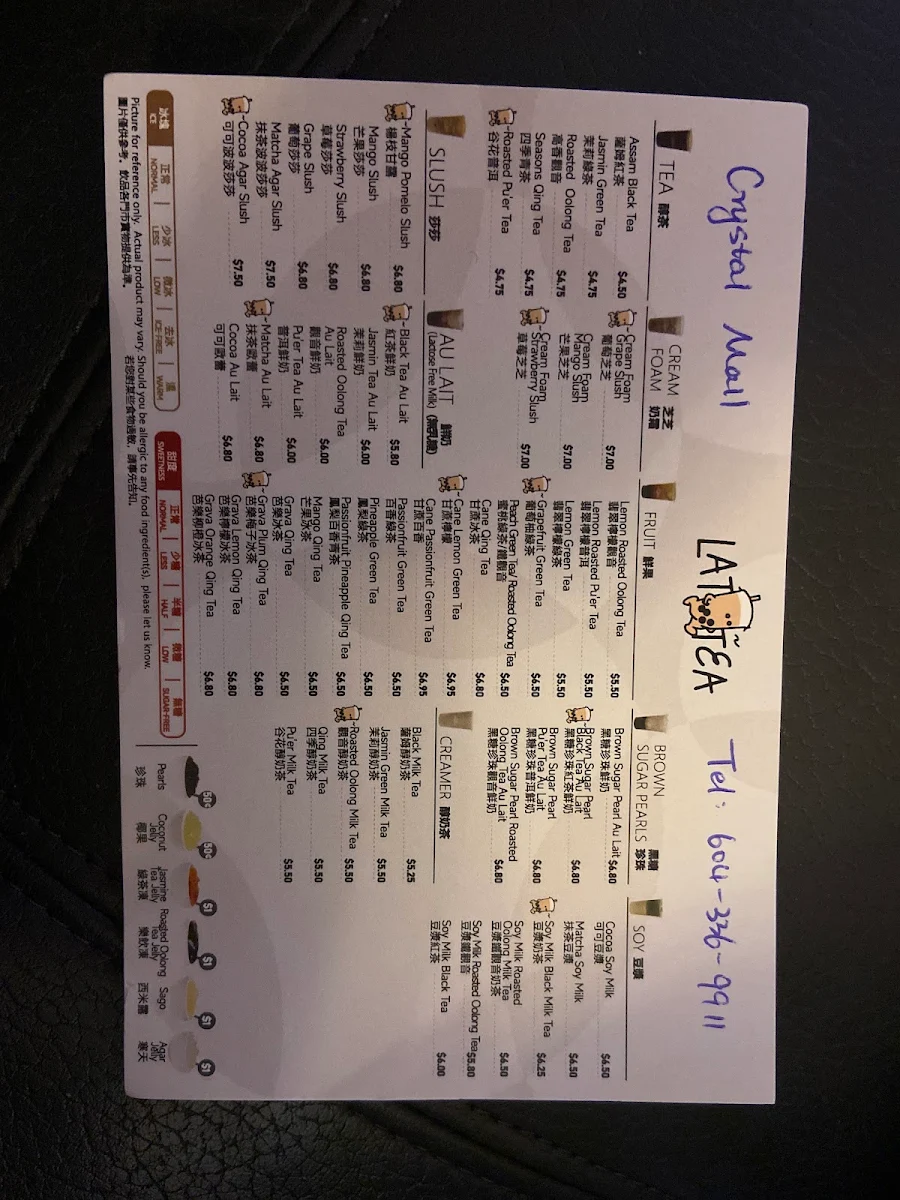 Crystal Mall
LATTEA
Tel: 604-336-9911
TEA 醇茶
Assam Black Tea $4.50
薩姆紅茶
Jasmin Green Tea $4.75
茉莉綠茶
Roasted Oolong Tea $4.75
高香觀音
Seasons Qing Tea $4.75
四季青茶
Roasted Pu'er Tea $4.75
谷花普洱
SLUSH 莎莎
Mango Pomelo Slush $6.80
楊枝甘露
Mango Slush $6.80
芒果莎莎
Strawberry Slush $6.80
草莓莎莎
Grape Slush $6.80
葡萄莎莎
Matcha Agar Slush $7.50
抹茶波波莎莎
Cocoa Agar Slush $7.50
可可波波莎莎
CREAM FOAM 芝芝奶霜
Cream Foam
Grape Slush $7.00
葡萄芝芝
Cream Foam
Mango Slush $7.00
芒果芝芝
Cream Foam
Strawberry Slush $7.00
草莓芝芝
AU LAIT 鮮奶
(Lactose Free Milk) (無乳糖)
Black Tea Au Lait $5.80
紅茶鮮奶
Jasmin Tea Au Lait $6.00
茉莉鮮奶
Roasted Oolong Tea
Au Lait $6.00
觀音鮮奶
Pu'er Tea Au Lait $6.00
普洱鮮奶
Matcha Au Lait $6.80
抹茶歐蕾
Cocoa Au Lait $6.80
可可歐蕾
FRUIT 鮮果
Lemon Roasted Oolong Tea $5.50
翡翠檸檬觀音
Lemon Roasted Pu'er Tea $5.50
翡翠檸檬普洱
Lemon Green Tea $5.50
翡翠檸檬綠茶
Grapefruit Green Tea $6.50
葡萄柚綠茶
Peach Green Tea/ Roasted Oolong Tea $6.50
蜜桃綠茶/鐵觀音
Cane Qing Tea $6.80
甘蔗冰茶
Cane Lemon Green Tea $6.95
甘蔗檸檬
Cane Passionfruit Green Tea $6.95
甘蔗百香
Passionfruit Green Tea $6.50
百香綠茶
Pineapple Green Tea $6.50
鳳梨綠茶
Passionfruit Pineapple Qing Tea $6.50
鳳梨百香青茶
Mango Qing Tea $6.50
芒果冰茶
Grava Qing Tea $6.50
芭樂冰茶
Grava Plum Qing Tea $6.80
芭樂梅子冰茶
Grava Lemon Qing Tea $6.80
芭樂檸檬冰茶
Grava Orange Qing Tea $6.80
芭樂柳橙冰茶
BROWN SUGAR PEARLS 黑糖珍珠
Brown Sugar Pearl Au Lait $6.80
黑糖珍珠鮮奶
Brown Sugar Pearl
Black Tea Au Lait $6.80
黑糖珍珠紅茶鮮奶
Brown Sugar Pearl
Pu'er Tea Au Lait $6.80
黑糖珍珠普洱鮮奶
Brown Sugar Pearl Roasted
Oolong Tea Au Lait $6.80
黑糖珍珠觀音鮮奶
CREAMER 醇奶茶
Black Milk Tea $5.25
薩姆醇奶茶
Jasmin Green Milk Tea $5.50
茉莉醇奶茶
Roasted Oolong Milk Tea $5.50
觀音醇奶茶
Qing Milk Tea $5.50
四季醇奶茶
Pu'er Milk Tea $5.50
谷花醇奶茶
SOY 豆漿
Cocoa Soy Milk $6.50
可可豆漿
Matcha Soy Milk $6.50
抹茶豆漿
Soy Milk Black Milk Tea $6.25
豆漿奶茶
Soy Milk Roasted
Oolong Milk Tea $6.50
豆漿鐵觀音奶茶
Soy Milk Roasted Oolong Tea $5.80
豆漿鐵觀音
Soy Milk Black Tea $6.00
豆漿紅茶
冰塊 ICE
正常 NORMAL | 少冰 LESS | 微冰 LOW | 去冰 ICE-FREE | 溫 WARM
甜度 SWEETNESS
正常 NORMAL | 少糖 LESS | 半糖 HALF | 微糖 LOW | 無糖 SUGAR-FREE
Picture for reference only. Actual product may vary. Should you be allergic to any food ingredient(s), please let us know.
圖片僅供參考。飲品各門市實物提供為準。 若您對某些食物過敏，請事先告知。
50¢ Pearls 珍珠
50¢ Coconut Jelly 椰果
$1 Jasmine Tea Jelly 綠茶凍
$1 Roasted Oolong Tea Jelly 樂飲凍
$1 Sago 西米露
$1 Agar Jelly 寒天